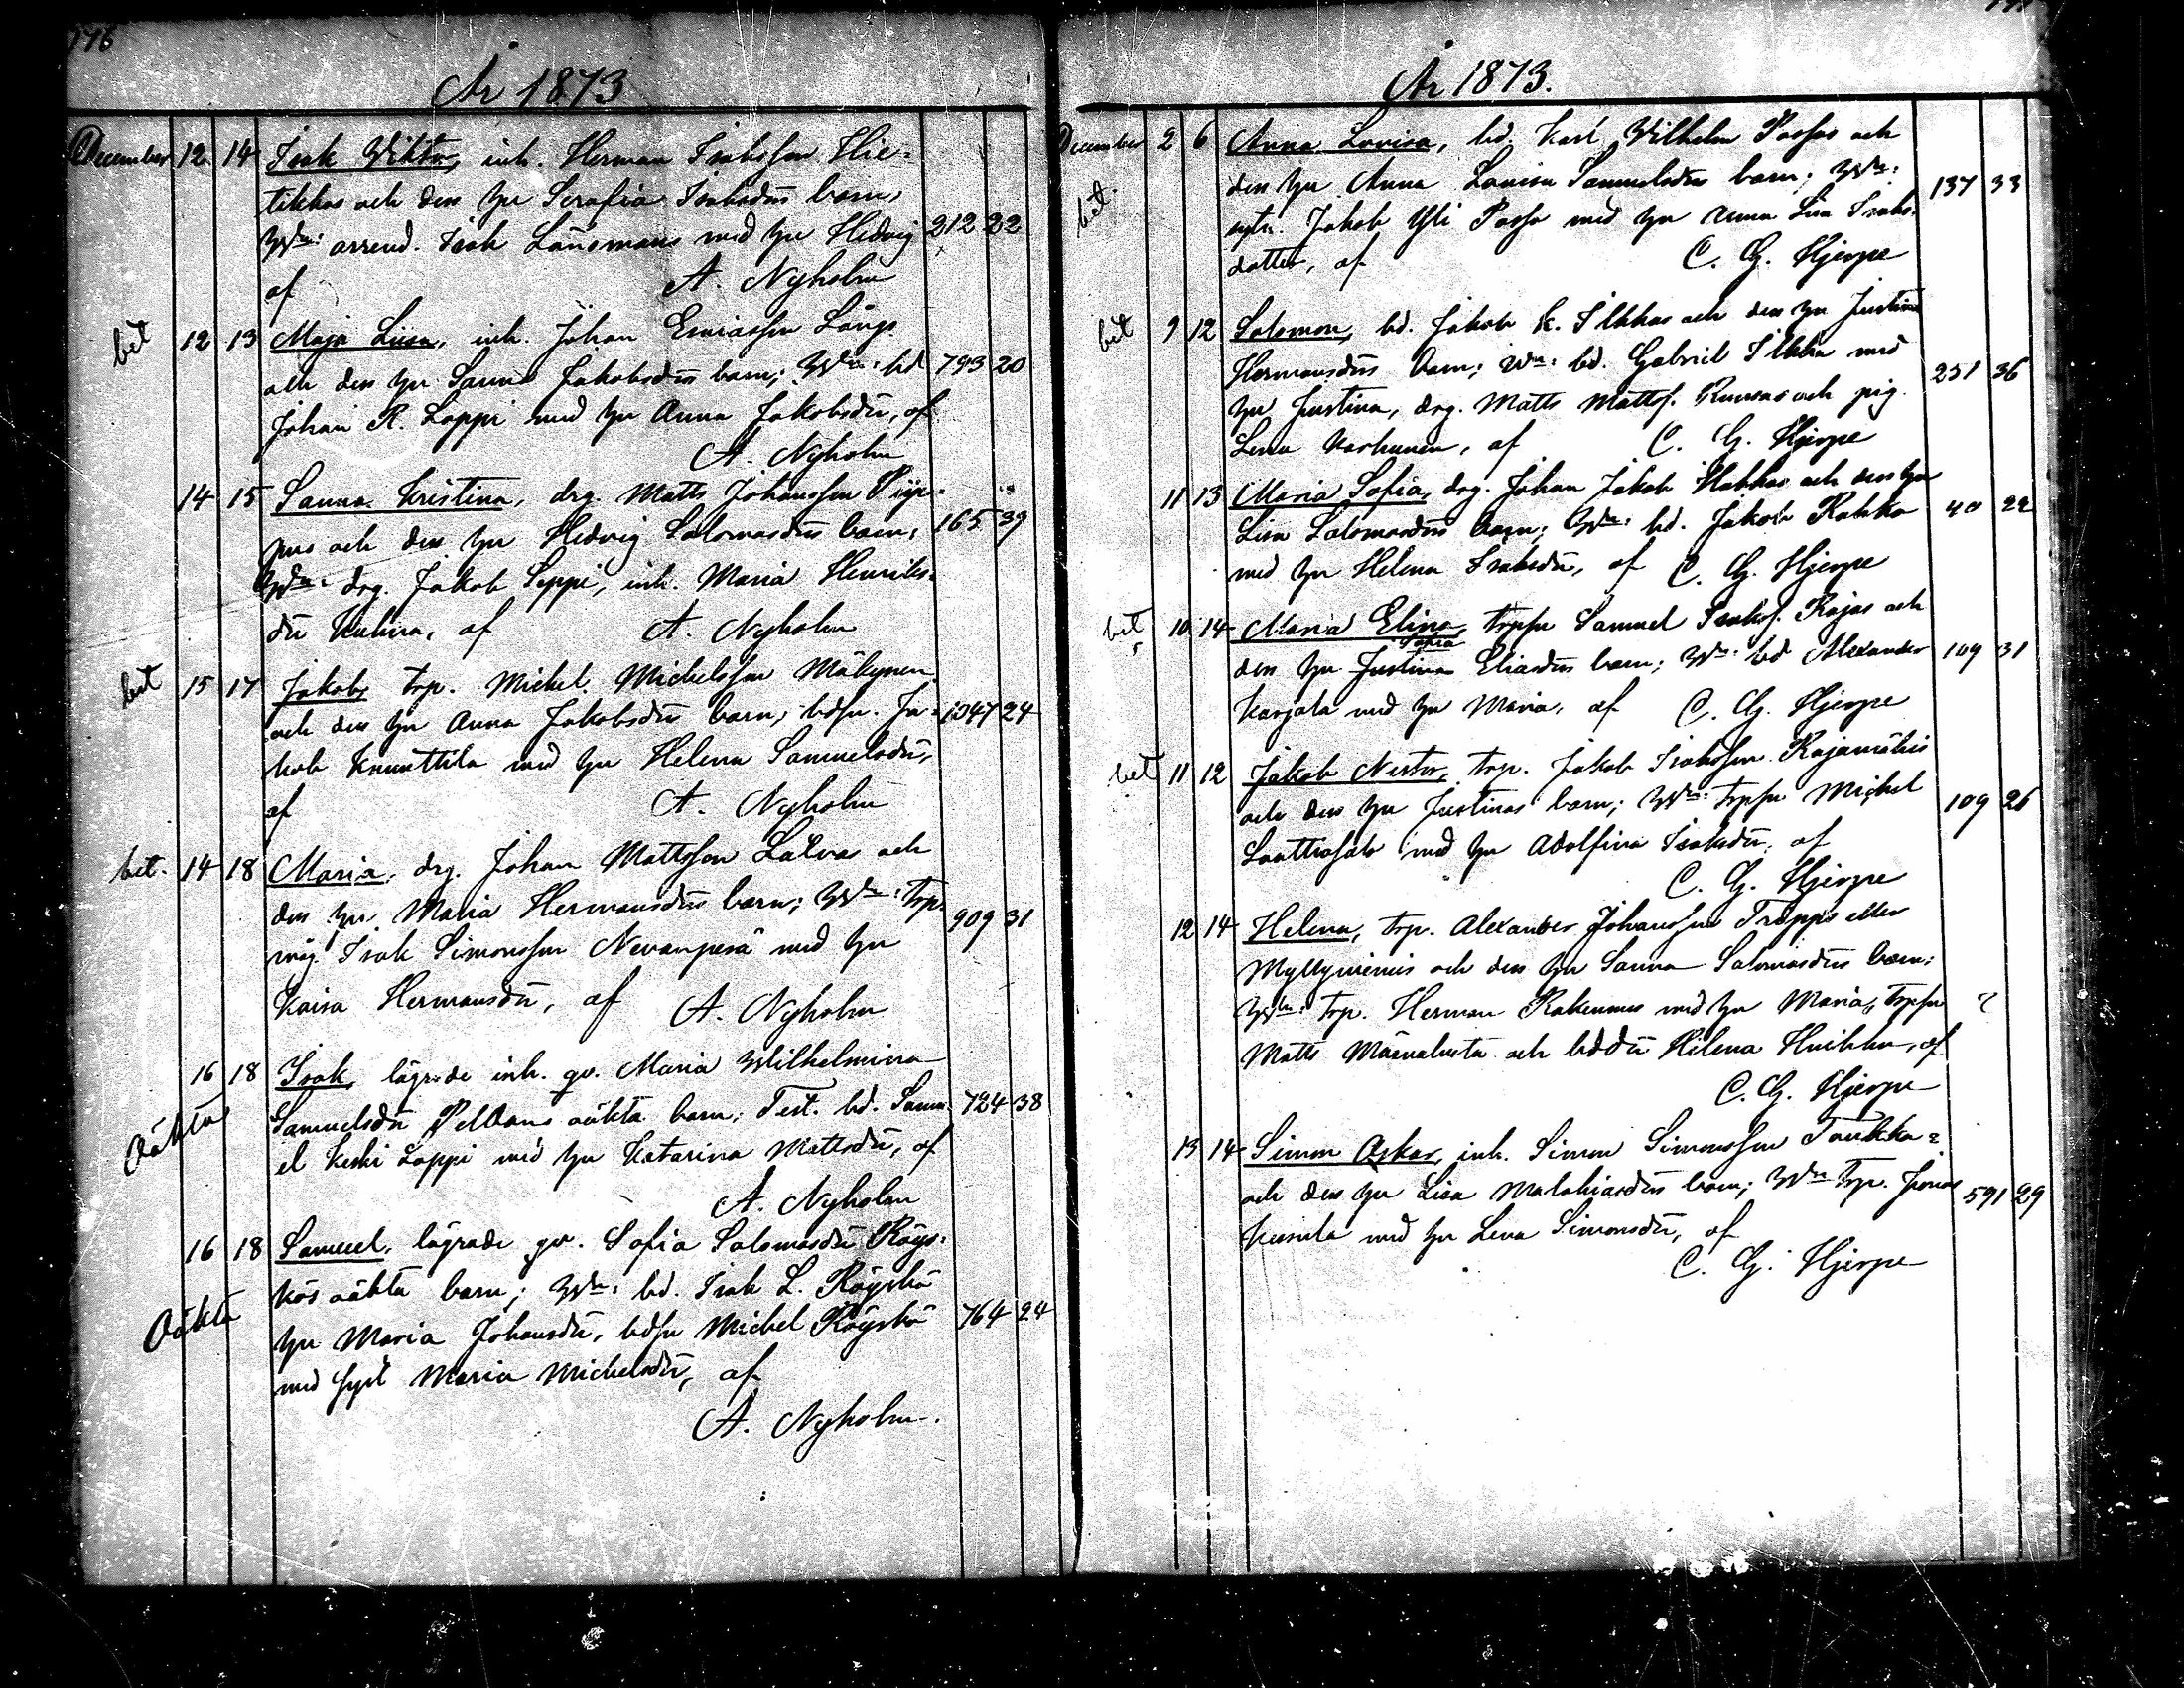 176
År 1873
December 12 14 Isak Viktor, inh. Herman Isaksson Hie-
tikkos och dess hu Serafia Isaksdrs barn,
Wn: arrend. Isak Länsmans med hu Hedvig 212 22
af A. Nyholm
bet 12 13 Maja Liisa, inh. Johan Esaiasson Längs
och dess hu Sanna Jakobsdrs barn; Wn: bd 793 20
Johan R. Lappi med hu Anna Jakobsdr, af
A. Nyholm
14 15 Sanna Kristina, drg. Matts Johansson Piip-
pus och dess hu Hedvig Salomosdrs barn, 165 39
Wn: drg. Jakob Seppi, inh. Maria Henriks-
dr Kuhna, af A. Nyholm
bet 15 17 Jakob, trp. Mickel Mickelsson Mäkynen
och dess hu Anna Jakobsdrs barn, bdsn. Ja- 1347 24
kob Knuuttila med hu Helena Samuelsdr,
af A. Nyholm
bet. 14 18 Maria, drg. Johan Mattsson Latvas och
dess hu Maria Hermansdrs barn; Wn: trp. 909 31
måg Isak Simonsson Nevanperä med hu
Kaisa Hermansdr, af A. Nyholm
16 18 Isak, lägrade inh. qv. Maria Wilhelmina
Oäkta Samuelsdr Peltons oäkta barn; Test. bd. Samu- 724 38
el Keski Lappi med hu Katarina Mattsdr, af
A. Nyholm
16 18 Samuel, lägrade qv. Sofia Salomosdr Röys-
Oäkta kös oäkta barn; Wn: bd. Isak L. Röyskö
hu Maria Johansdr, bdsn Mickel Röyskö 764 24
med syst Maria Mickelsdr, af
A. Nyholm.
År 1873.
December 2 6 Anna Lovisa, bd. Karl Wilhelm Passos och
bet. dess hu Anna Lovisa Samuelsdrs barn; Wn: 137 33
Jakob Yli Passo med hu Anna Lisa Isaks-
dotter, af C. G. Hjerpe
bet 9 12 Salomon, bd. Jakob K. Ilkkas och dess hu Justina
Hermansdrs barn; Wn: bd. Gabriel Ilkka med 251 36
hu Justina, drg. Matts Mattss. och pig.
Lena Karhunen, af C. G. Hjerpe
11 13 Maria Sofia, drg. Johan Jakob Hakkas och dess hu
Lisa Salomosdrs barn; Wn: bd. Jakob Rahko 40 22
med hu Helena Isaksdr, af C. G. Hjerpe
bet 10 14 Maria Elina, trpsn Samuel Isakss. Rajas och
Sofia
dess hu Justina Eliasdrs barn; Wn: bd Alexander 109 31
Karjala med hu Maria, af C. G. Hjerpe
bet 11 12 Jakob Nestor, trp. Jakob Isaksson Rajamäkis
och dess hu Justinas barn; Wn: trpsn Michel 109 26
Laattiasalo med hu Adolfina Isaksdr, af
C. G. Hjerpe
12 14 Helena, trp. Alexander Johansson Trapps eller
Myllyniemis och dess hu Sanna Salomosdrs barn;
Wn: trp. Herman Rakennus med hu Maria, trpsn ?
Matts Määnalusta och bddr Helena Huikku, af
C. G. Hjerpe
13 14 Simon Oskar, inh. Simon Simonsson Taukka-
och dess hu Lisa Malakiasdrs barn; Wn trp. Jonas 591 29
Keesela med hu Lena Simonsdr, af
C. G. Hjerpe